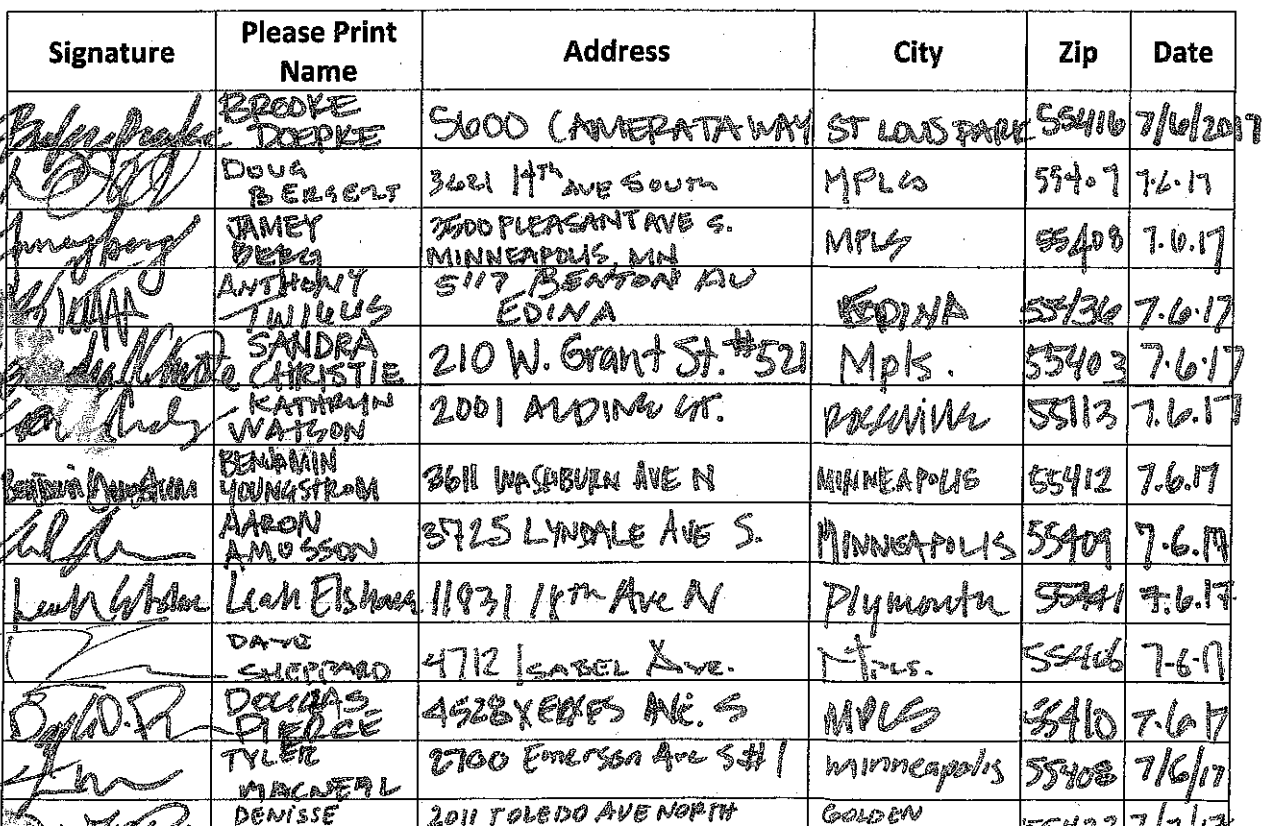 Signature Please Print Name Address City Zip Date
BROOKE DOEPKE 5600 CAMERATA WAY ST LOUIS PARK 55416 7/6/2017
DOUG 3621 11th AVE SOUTH MPLS 55407 7.6.17
JAMEY BERG 3500 PLEASANT AVE S. MINNEAPOLIS, MN MPLS 55408 7.6.17
ANTHONY 5117 BENTON AV EDINA EDINA 55436 7.6.17
SANDRA CHRISTIE 210 W. Grant St. #521 Mpls. 55403 7.6.17
KATHRYN WATSON 2001 CT. ROSEVILLE 55113 7.6.17
BENJAMIN YOUNGSTROM 3611 WASHBURN AVE N MINNEAPOLIS 55412 7.6.17
AARON AMUSSON 3725 LYNDALE AVE S. MINNEAPOLIS 55409 7.6.17
Leah 11831 18th Ave N Plymouth 55441 7.6.17
DAVE SHEPPARD 4712 ISABEL AVE. MPLS. 55406 7-6-17
DOUGLAS PIERCE 4528 XERXES AVE. S MPLS 55410 7.6.17
TYLER MACNEAL 2700 Emerson Ave S #1 minneapolis 55408 7/6/17
DENISSE 2011 TOLEDO AVE NORTH GOLDEN